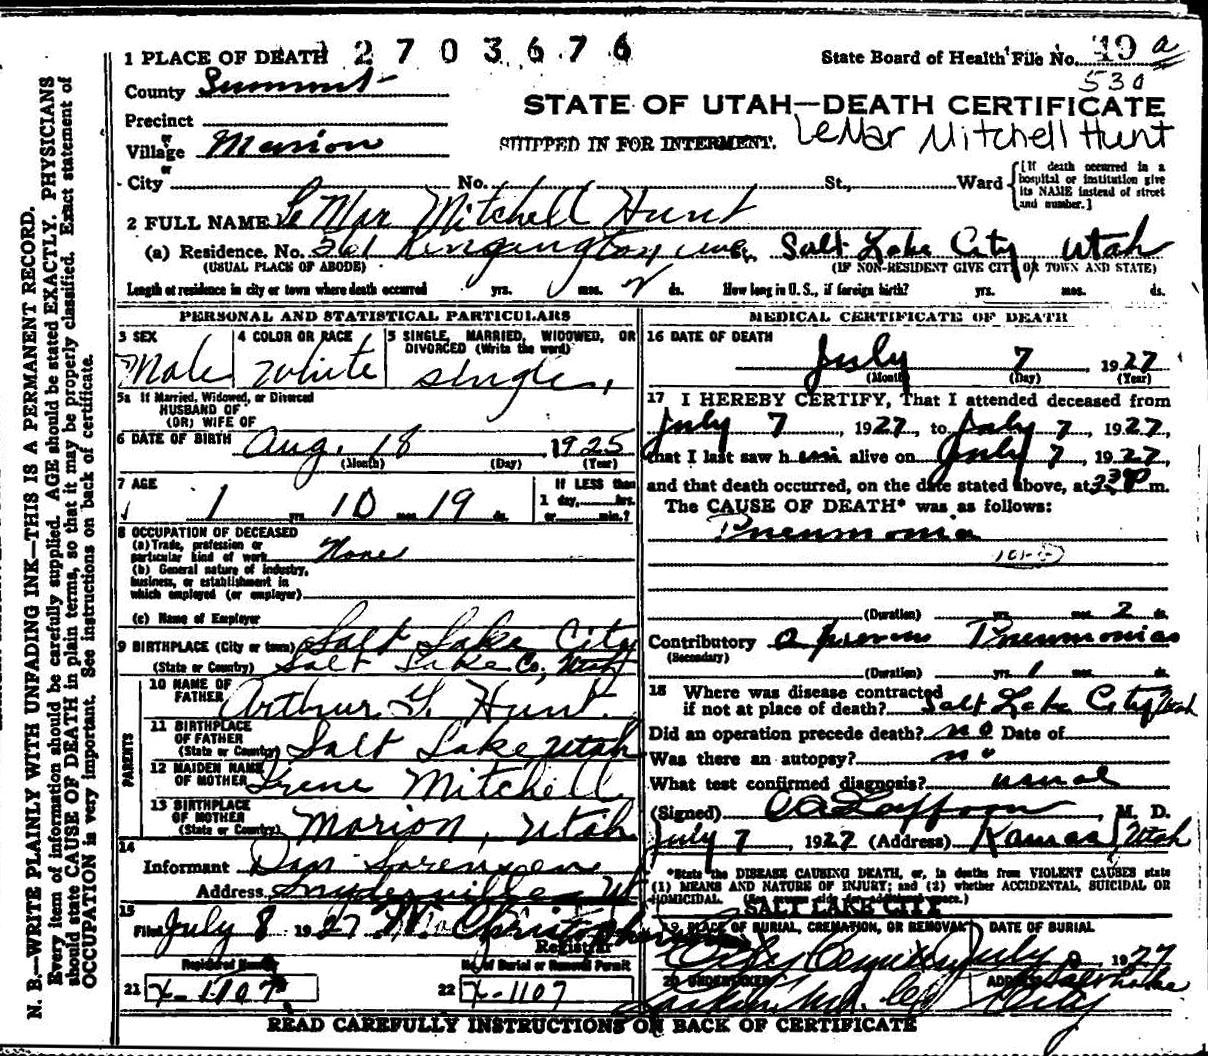 1 PLACE OF DEATH 2703676
State Board of Health File No. 49 a
530
County Summit
STATE OF UTAH—DEATH CERTIFICATE
Precinct
or
Village Marion
SHIPPED IN FOR INTERMENT. LeMar Mitchell Hunt
or
City No. St., Ward
[If death occurred in a hospital or institution give its NAME instead of street and number.]
2 FULL NAME Le Mar Mitchell Hunt
(a) Residence. No. 261 Ave. Salt Lake City Utah
(USUAL PLACE OF ABODE) (IF NON-RESIDENT GIVE CITY OR TOWN AND STATE)
Length of residence in city or town where death occurred yrs. mos. ds. How long in U. S., if foreign birth? yrs. mos. ds.
PERSONAL AND STATISTICAL PARTICULARS
3 SEX Male
4 COLOR OR RACE White
5 SINGLE, MARRIED, WIDOWED, OR DIVORCED (Write the word) Single,
5a If Married, Widowed, or Divorced
HUSBAND OF
(OR) WIFE OF
6 DATE OF BIRTH Aug. 18 1925
(Month) (Day) (Year)
7 AGE 1 yrs. 10 mos. 19 ds.
If LESS than
1 day, hrs.
or min.?
8 OCCUPATION OF DECEASED
(a) Trade, profession or
particular kind of work None
(b) General nature of industry,
business, or establishment in
which employed (or employer)
(c) Name of Employer
9 BIRTHPLACE (City or town) Salt Lake City
(State or Country) Salt Lake Co, Utah
PARENTS
10 NAME OF FATHER Arthur G. Hunt
11 BIRTHPLACE OF FATHER (State or Country) Salt Lake, Utah
12 MAIDEN NAME OF MOTHER Irene Mitchell
13 BIRTHPLACE OF MOTHER (State or Country) Marion, Utah
14
Informant Dan Sorensen
Address Snyderville Ut
15
Filed July 8 1927
Registrar
Registered Number
21 X-1107
No. of Burial or Removal Permit
22 X-1107
MEDICAL CERTIFICATE OF DEATH
16 DATE OF DEATH
July 7 1927
(Month) (Day) (Year)
17 I HEREBY CERTIFY, That I attended deceased from
July 7, 1927, to July 7, 1927,
that I last saw him alive on July 7, 1927,
and that death occurred, on the date stated above, at m.
The CAUSE OF DEATH* was as follows:
Pneumonia
(Duration) yrs. mos. 2 ds.
Contributory Pneumonias
(Secondary)
(Duration) yrs. 1 mos. ds.
18 Where was disease contracted
if not at place of death? Salt Lake City Utah
Did an operation precede death? no Date of
Was there an autopsy? no
What test confirmed diagnosis? usual
(Signed) M. D.
July 7, 1927 (Address) Kamas, Utah
*State the DISEASE CAUSING DEATH, or, in deaths from VIOLENT CAUSES state
(1) MEANS AND NATURE OF INJURY; and (2) whether ACCIDENTAL, SUICIDAL OR
HOMICIDAL. (See reverse side for additional space.)
SALT LAKE CITY
19 PLACE OF BURIAL, CREMATION, OR REMOVAL DATE OF BURIAL
City Cemetery July 1927
20 UNDERTAKER ADDRESS
City
READ CAREFULLY INSTRUCTIONS ON BACK OF CERTIFICATE
N. B.—WRITE PLAINLY WITH UNFADING INK—THIS IS A PERMANENT RECORD.
Every item of information should be carefully supplied. AGE should be stated EXACTLY. PHYSICIANS
should state CAUSE OF DEATH in plain terms, so that it may be properly classified. Exact statement of
OCCUPATION is very important. See instructions on back of certificate.